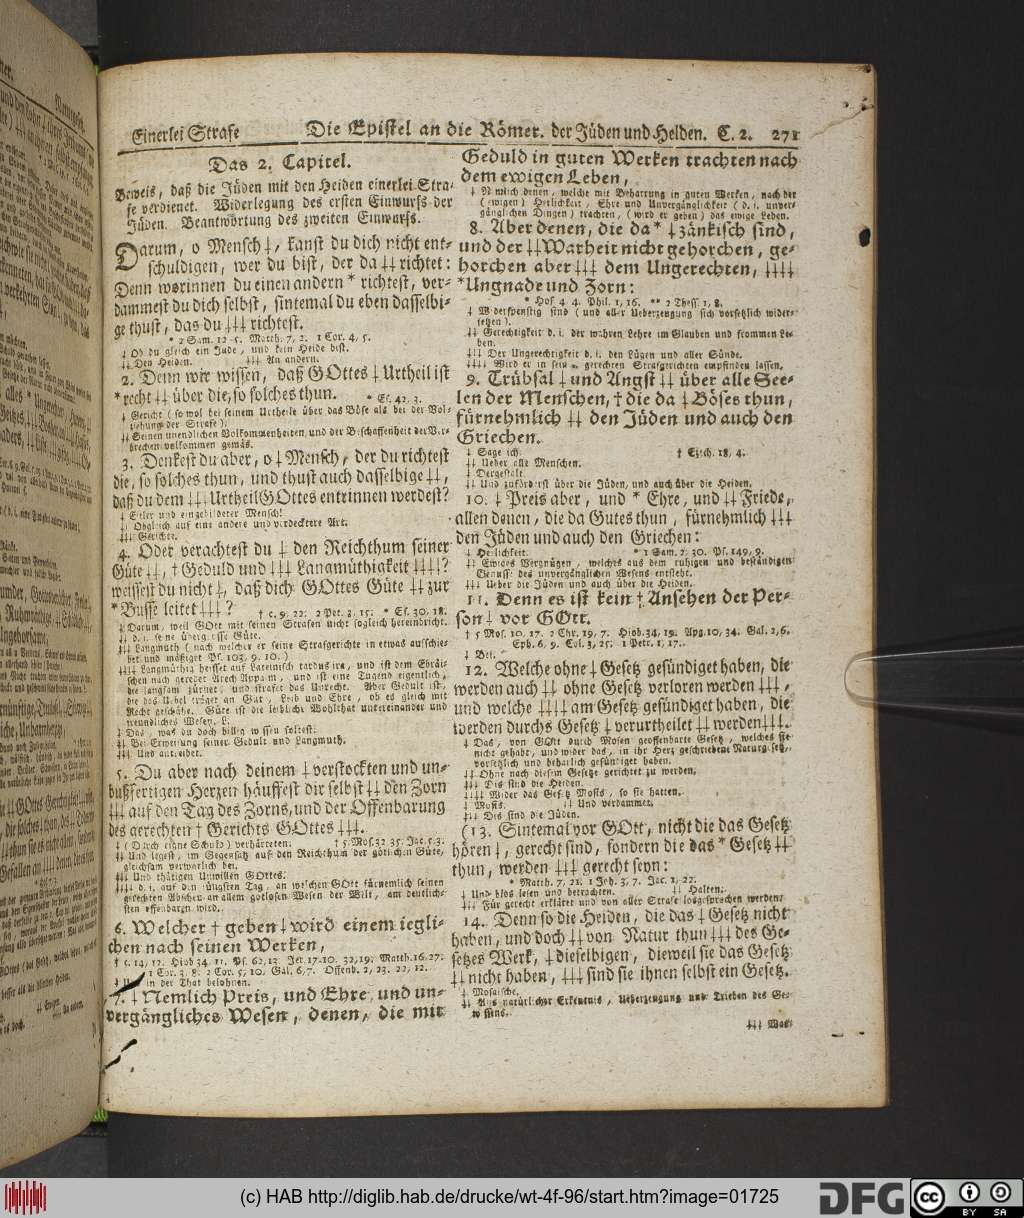 Einerlei Strafe Die Epistel an die Römer. der Jüden und Heiden. C. 2. 271
Das 2. Capitel.
Beweis, daß die Jüden mit den Heiden einerlei Stra-
fe verdienet. Widerlegung des ersten Einwurfs der
Jüden. Beantwortung des zweiten Einwurfs.
Darum, o Mensch ‡, kanst du dich nicht ent-
schuldigen, wer du bist, der da ‡‡ richtet:
Denn worinnen du einen andern * richtest, ver-
dammest du dich selbst, sintemal du eben dasselbi-
ge thust, das du ‡‡‡ richtest.
* 2 Sam. 12. 5. Matth. 7, 2. 1 Cor. 4, 5.
‡ Ob du gleich ein Jude, und kein Heide bist.
‡‡ Den Heiden. ‡‡‡ An andern.
2. Denn wir wissen, daß GOttes ‡ Urtheil ist
* recht ‡‡ über die, so solches thun. * Es. 42, 3.
‡ Gericht (so wol bei seinem Urtheile über das Böse als bei der Vol-
ziehung der Strafe).
‡‡ Seinen unendlichen Volkommenheiten, und der Beschaffenheit der Ver-
brechen volkommen gemäs.
3. Denkest du aber, o ‡ Mensch, der du richtest
die, so solches thun, und thust auch dasselbige ‡‡,
daß du dem ‡‡‡ Urtheil GOttes entrinnen werdest?
‡ Eitler und eingebildeter Mensch!
‡‡ Obgleich auf eine andere und verdecktere Art.
‡‡‡ Gerichte.
4. Oder verachtest du ‡ den Reichthum seiner
Güte ‡‡, † Geduld und ‡‡‡ Langmüthigkeit ‡‡‡‡?
weissest du nicht ‡, daß dich GOttes Güte ‡‡ zur
* Busse leitet ‡‡‡? † c. 9, 22. 2 Pet. 3, 15. * Es. 30, 18.
‡ Darum, weil GOtt mit seinen Strafen nicht sogleich hereinbricht.
‡‡ d. i. seine überg. osse Güte.
‡‡‡ Langmuth (nach welcher er seine Strafgerichte in etwas aufschie-
bet und mäßiget Ps. 103, 9. 10.)
‡‡‡‡ Langmüthig heisset auf Lateinisch tardus ira, und ist dem Ebräi-
schen nach geredet Arech Appaim, und ist eine Tugend eigentlich,
die langsam zürnet, und strafet das Unrecht. Aber Gedult ist,
die das Uebel träget an Gut, Leib und Ehre, ob es gleich mit
Recht geschähe. Güte ist die leiblich Wohlthat untereinander und
freundliches Wesen. L.
‡ Das, was du doch billig wissen soltest.
‡‡ Bei Erweisung seiner Gedult und Langmuth.
‡‡‡ Und antreibet.
5. Du aber nach deinem ‡ verstockten und un-
bußfertigen Herzen häuffest dir selbst ‡‡ den Zorn
‡‡‡ auf den Tag des Zorns, und der Offenbarung
des gerechten † Gerichts GOttes ‡‡‡.
‡ (Durch eigne Schuld) verhärteten. † 5 Mos. 32, 35. Jac. 5, 3.
‡‡ Und legest, im Gegensatz auf den Reichthum der götlichen Güte,
gleichsam verwarlich bei.
‡‡‡ Und thätigen Unwillen GOttes.
‡‡‡‡ d. i. auf den jüngsten Tag, an welchen GOtt fürnemlich seinen
gerechten Abscheu an allem gotlosen Wesen der Welt, am deutlich-
sten offenbaren wird.
6. Welcher † geben ‡ wird einem iegli-
chen nach seinen Werken,
† c. 14, 12. Hiob 34, 11. Ps. 62, 13. Jer. 17, 10. 32, 19. Matth. 16, 27.
1 Cor. 3, 8. 2 Cor. 5, 10. Gal. 6, 7. Offenb. 2, 23. 22, 12.
in der That belohnen.
7. ‡ Nemlich Preis, und Ehre, und un-
vergängliches Wesen, denen, die mit
Geduld in guten Werken trachten nach
dem ewigen Leben,
‡ Nemlich denen, welche mit Beharrung in guten Werken, nach der
(ewigen) Herlichkeit, Ehre und Unvergänglichkeit (d. i. unver-
gänglichen Dingen) trachten, (wird er geben) das ewige Leben.
8. Aber denen, die da * ‡ zänkisch sind,
und der ‡‡ Warheit nicht gehorchen, ge-
horchen aber ‡‡‡ dem Ungerechten, ‡‡‡‡
* Ungnade und Zorn:
* Hos. 4, 4. Phil. 1, 16. ** 2 Thess. 1, 8.
‡ Widerspenstig sind (und aller Ueberzeugung sich vorsetzlich wider-
setzen).
‡‡ Gerechtigkeit d. i. der wahren Lehre im Glauben und frommen Le-
ben.
‡‡‡ Der Ungerechtigkeit d. i. den Lügen und aller Sünde.
‡‡‡‡ Wird er in seinen gerechten Strafgerichten empfinden lassen,
9. Trübsal ‡ und Angst ‡‡ über alle See-
len der Menschen, † die da ‡ Böses thun,
fürnehmlich ‡‡ den Jüden und auch den
Griechen.
‡ Sage ich. † Ezech. 18, 4.
‡‡ Ueber alle Menschen.
‡ Dergestalt.
‡‡ Und zuförderst über die Jüden, und auch über die Heiden.
10. ‡ Preis aber, und * Ehre, und ‡‡ Friede,
allen denen, die da Gutes thun, fürnehmlich ‡‡‡
den Jüden und auch den Griechen:
‡ Herlichkeit. * 1 Sam. 2, 30. Ps. 149, 9.
‡‡ Ewiges Vergnügen, welches aus dem ruhigen und beständigen
Genuss des unvergänglichen Wesens entsteht.
‡‡‡ Ueber die Jüden und auch über die Heiden.
11. Denn es ist kein † Ansehen der Per-
son ‡ vor GOtt.
† 5 Mos. 10, 17. 2 Chr. 19, 7. Hiob. 34, 19. Apg. 10, 34. Gal. 2, 6.
Eph. 6, 9. Col. 3, 25. 1 Petr. 1, 17.
‡ Bei.
12. Welche ohne ‡ Gesetz gesündiget haben, die
werden auch ‡‡ ohne Gesetz verloren werden ‡‡‡,
und welche ‡‡‡‡ am Gesetz gesündiget haben, die
werden durchs Gesetz ‡ verurtheilet ‡‡ werden ‡‡‡.
‡ Das, von GOtt durch Mosen geoffenbarte Gesetz, welches sie
nicht gehabt, und wider das, in ihr Herz geschriebene Naturgesetz,
vorsetzlich und beharlich gesündiget haben.
‡‡ Ohne nach diesem Gesetze gerichtet zu werden.
‡‡‡ Dis sind die Heiden.
‡‡‡‡ Wider das Gesetz Mosis, so sie hatten.
‡ Mosis. ‡‡ Und verdammet.
‡‡‡ Dis sind die Jüden.
(13. Sintemal vor GOtt, nicht die das Gesetz
hören ‡, gerecht sind, sondern die das * Gesetz ‡‡
thun, werden ‡‡‡ gerecht seyn:
* Matth. 7, 21. 1 Joh. 3, 7. Jac. 1, 22.
‡ Und blos lesen und betrachten. ‡‡ Halten.
‡‡‡ Für gerecht erkläret und von aller Strafe losgesprochen werden.
14. Denn so die Heiden, die das ‡ Gesetz nicht
haben, und doch ‡‡ von Natur thun ‡‡‡ des Ge-
setzes Werk, ‡ dieselbigen, dieweil sie das Gesetz
‡‡ nicht haben, ‡‡‡ sind sie ihnen selbst ein Gesetz.
‡ Mosaische.
‡‡ Aus natürlicher Erkentnis, Ueberzeugung und Trieben des Ge-
wissens.
‡‡‡ Was
(c) HAB http://diglib.hab.de/drucke/wt-4f-96/start.htm?image=01725
DFG
cc BY SA